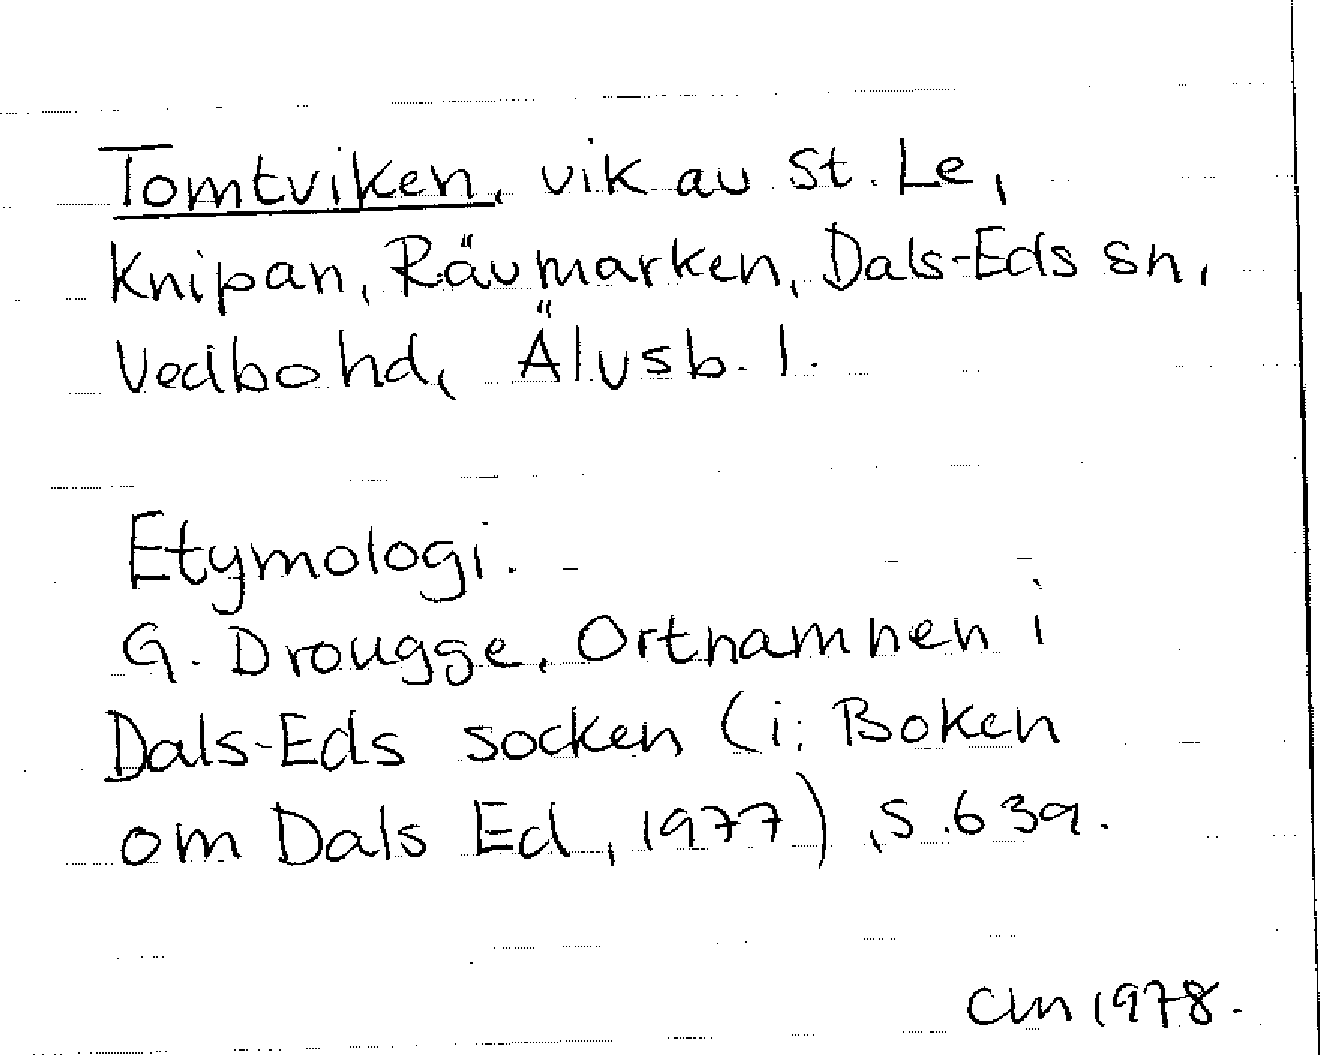 Tomtviken, vik av St. Le,
Knipan, Rävmarken, Dals-Eds sn,
Vedbo hd, Älvsb. l.
Etymologi.
G. Drougge, Ortnamnen i
Dals-Eds socken (i: Boken
om Dals Ed, 1977), s. 639.
CLn 1978.